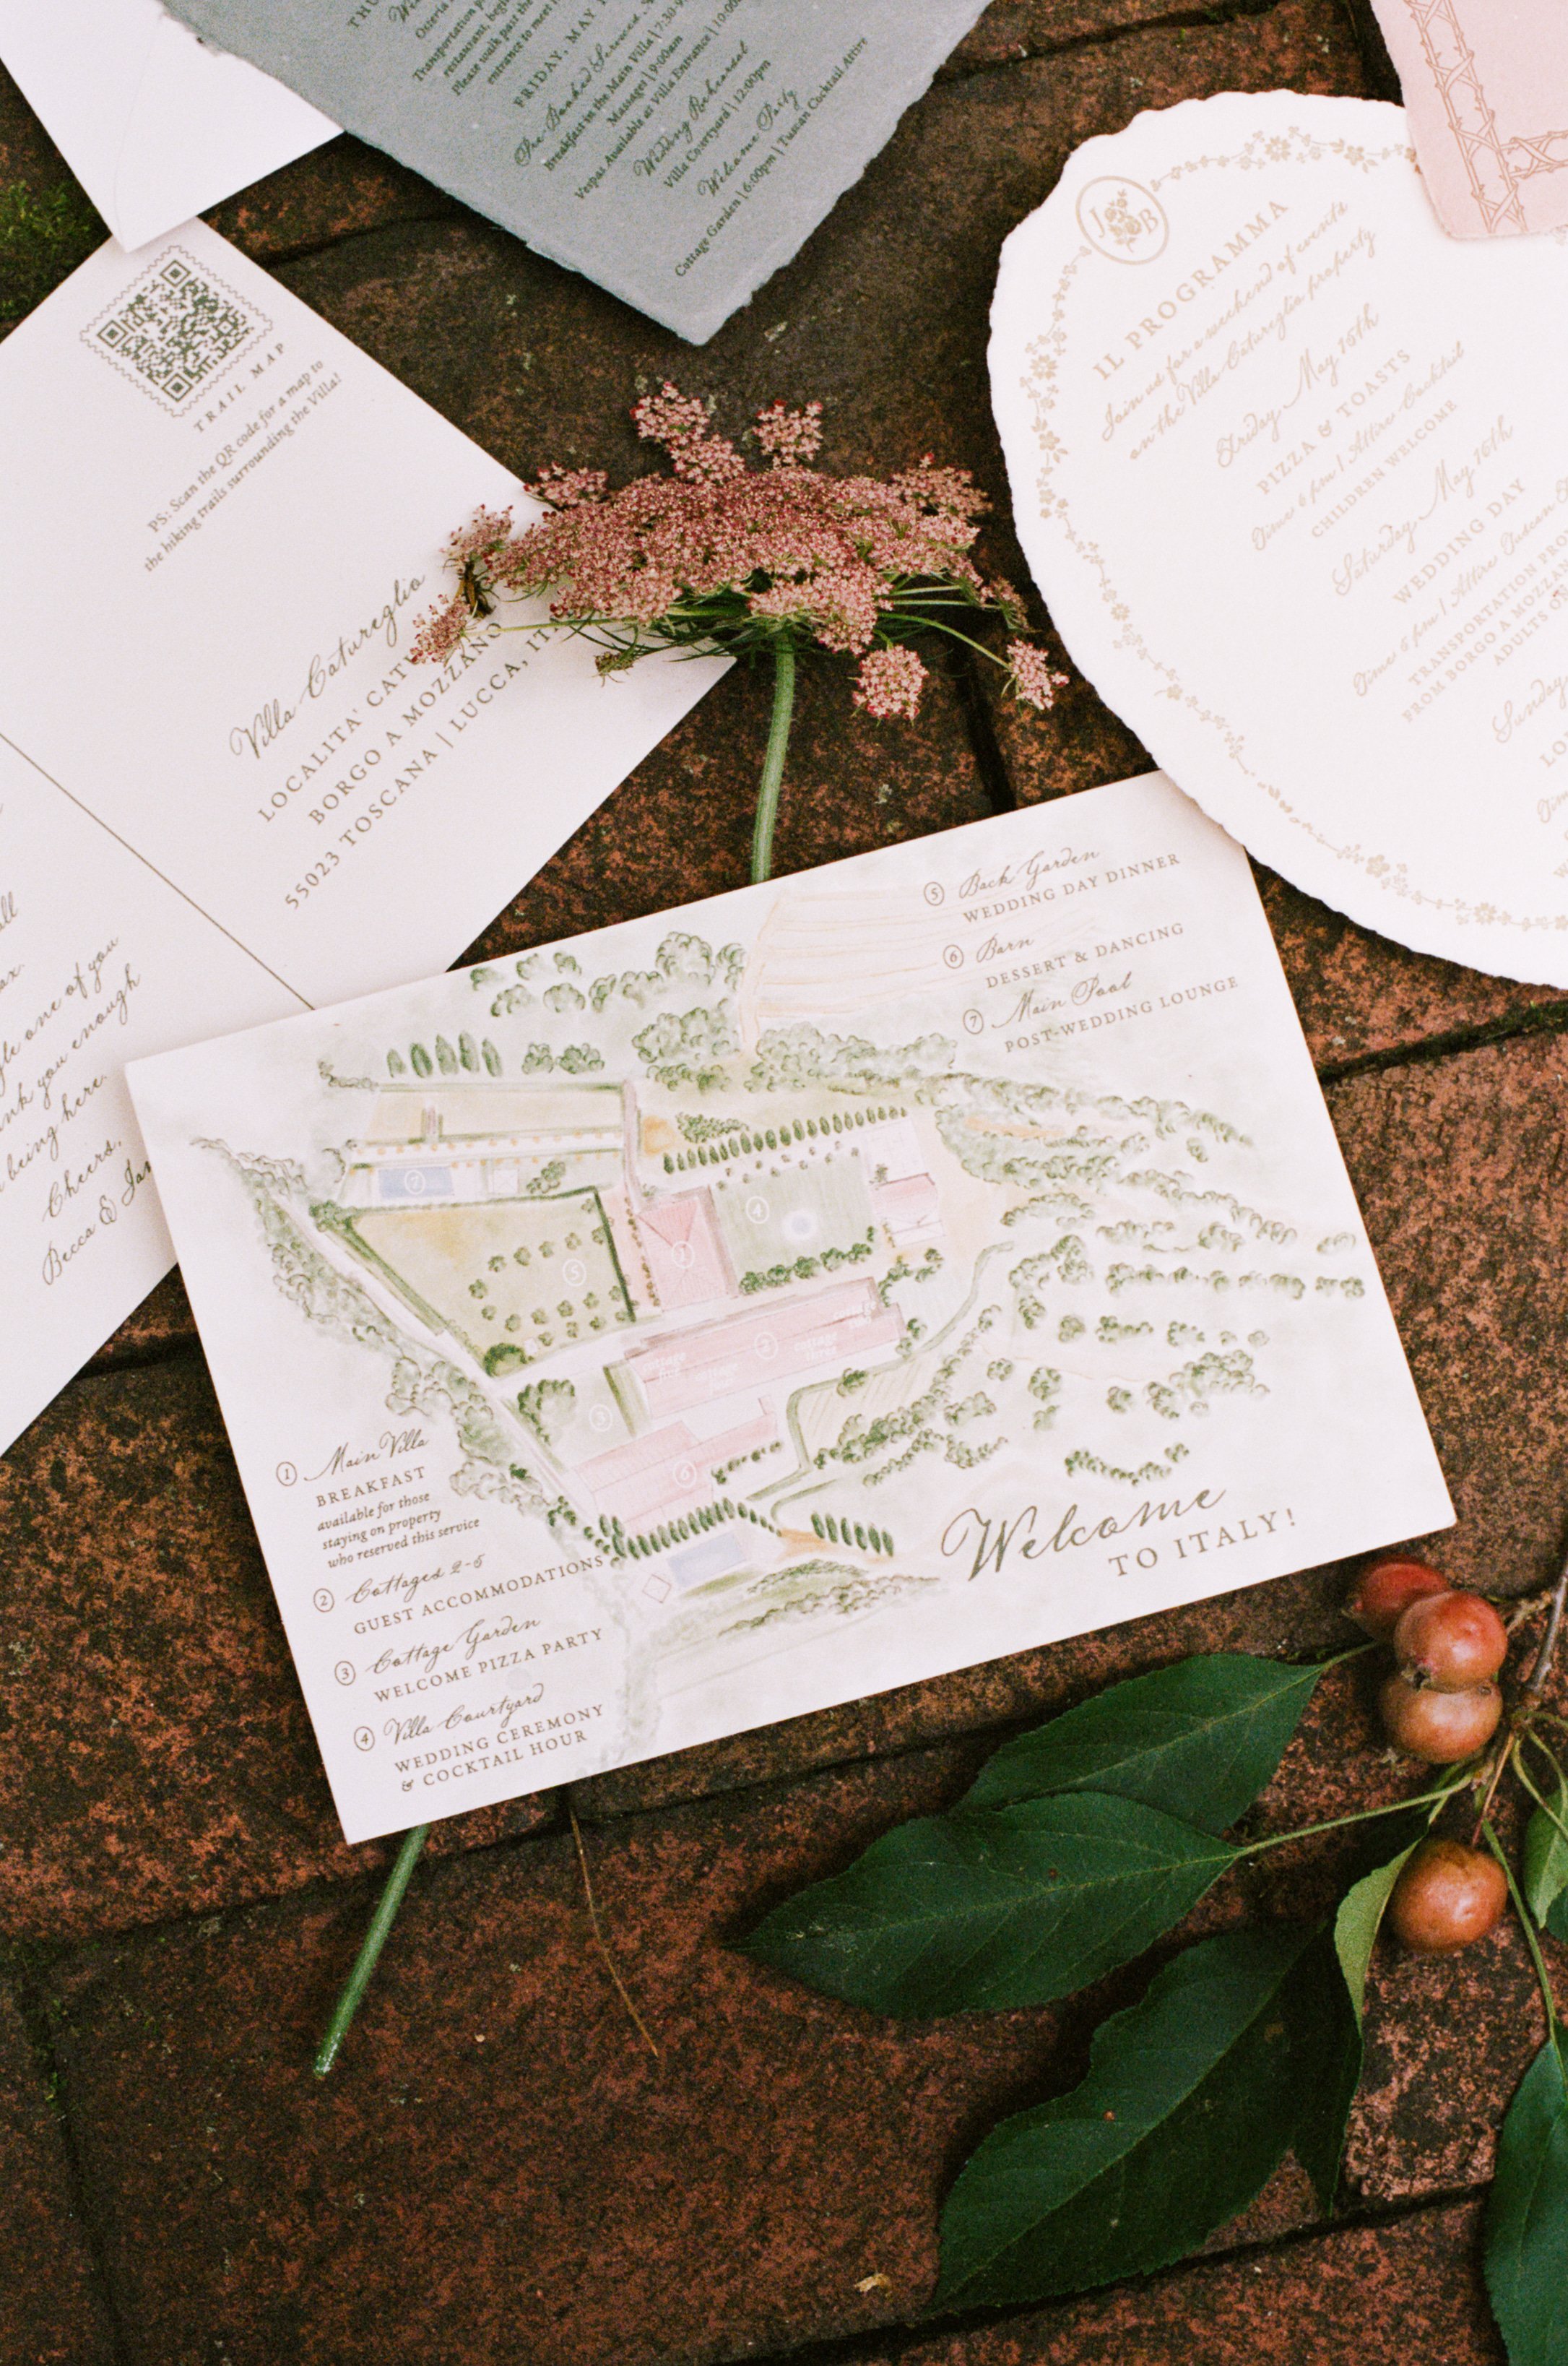 THU
Osteria
Transportation
restaurant,
Please walk past the
entrance to meet
FRIDAY, MAY 1
Pre-Booked Services
Breakfast in the Main Villa | 9:00am
Massages |
Vespas Available at Villa Entrance | 10:00
Wedding Rehearsal
Villa Courtyard | 12:00pm
Welcome Party
Cottage Garden | 6:00pm | Tuscan Cocktail Attire
TRAIL MAP
PS: Scan the QR code for a map to
the hiking trails surrounding the Villa!
Villa Catureglio
LOCALITA' CATU
BORGO A MOZZANO
55023 TOSCANA | LUCCA, IT
one of you
you enough
being here.
Cheers,
Becca & Ja
J B
IL PROGRAMMA
Join us for a weekend of events
on the Villa Catureglio property
Friday May 15th
PIZZA & TOASTS
Time 6 pm | Attire Cocktail
CHILDREN WELCOME
Saturday May 16th
WEDDING DAY
Time 5 pm | Attire Tuscan
TRANSPORTATION PRO
FROM BORGO A MOZZAN
ADULTS O
Sunday
5 Back Garden
WEDDING DAY DINNER
6 Barn
DESSERT & DANCING
7 Main Pool
POST-WEDDING LOUNGE
7
4
1
5
2
3
6
1 Main Villa
BREAKFAST
available for those
staying on property
who reserved this service
2 Cottages 2-5
GUEST ACCOMMODATIONS
3 Cottage Garden
WELCOME PIZZA PARTY
4 Villa Courtyard
WEDDING CEREMONY
& COCKTAIL HOUR
Welcome
TO ITALY!